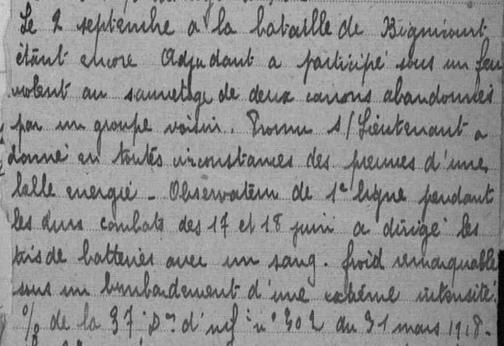 Le 2 septembre à la bataille de Bignicourt
étant encore Adjudant a participé sous un feu
violent au sauvetage de deux canons abandonnés
par un groupe voisin. Promu S/Lieutenant a
donné en toutes circonstances des preuves d'une
belle energie - Observateur de 1e ligne pendant
les durs combats des 17 et 18 juin a dirigé les
tirs de batteries avec un sang-froid remarquable
sous un bombardement d'une extrême intensité.
% de la 37 Don d'inf n° 302 du 31 mars 1918.